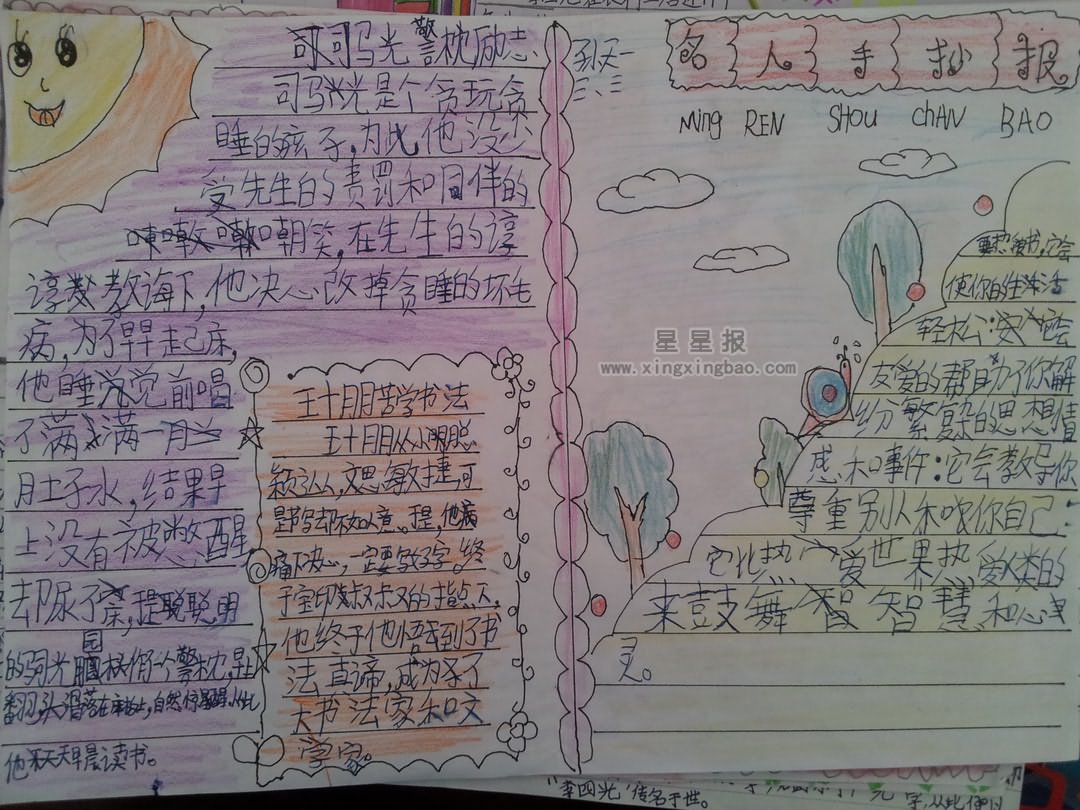 司司马光警枕励志
司马光是个贪玩贪
睡的孩子,为此他没少
受先生的责罚和同伴的
嘲笑,在先生的谆
谆教诲下,他决心改掉贪睡的坏毛
病,为了早早起床,
他睡觉前唱
了满满一月
肚子水,结果早
上没有被憋醒
去尿了提聪聪明
的司光园做一个警枕,早上
翻身,头滑落在床板上,自然惊醒,从此
他天天早晨读书。
王十月月苦学书法
王十月月从小聪
颖认人,文思敏捷,可
是书写却不如以意。于是,他痛
痛下决心,一定要学文字。终
于宝印叔叔叔的指点下,
他终于他悟到了书
法真谛,成为了
大书法家和文
学家。
孙天一
三、三
名人手抄报
Ming REN SHOU chAN BAO
星星报
www.xingxingbao.com
书,它会
使你的生活
轻松;它会
友爱的帮助了你解
纷繁的思想情
感和事件;它会教导你
尊重别人和你自己;
它比热爱世界热爱人类的
来鼓舞智智慧和心
灵。
"李四光"传名于世。
字,从此便